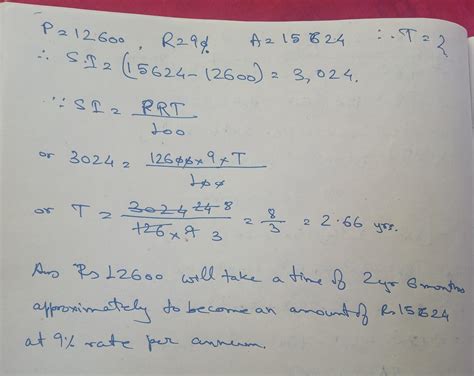 P = 12600, R = 9% A = 15624 ∴ T = ?
∴ S.I = (15624 - 12600) = 3,024.
∵ SI = PRT / 100
or 3024 = 12600 x 9 x T / 100
or T = 3024 24 8 / 126 x 9 3 = 8/3 = 2.66 yrs.
Ans Rs 12600 will take a time of 2yr 6 months
approximately to become an amount of Rs 15624
at 9% rate per annum.